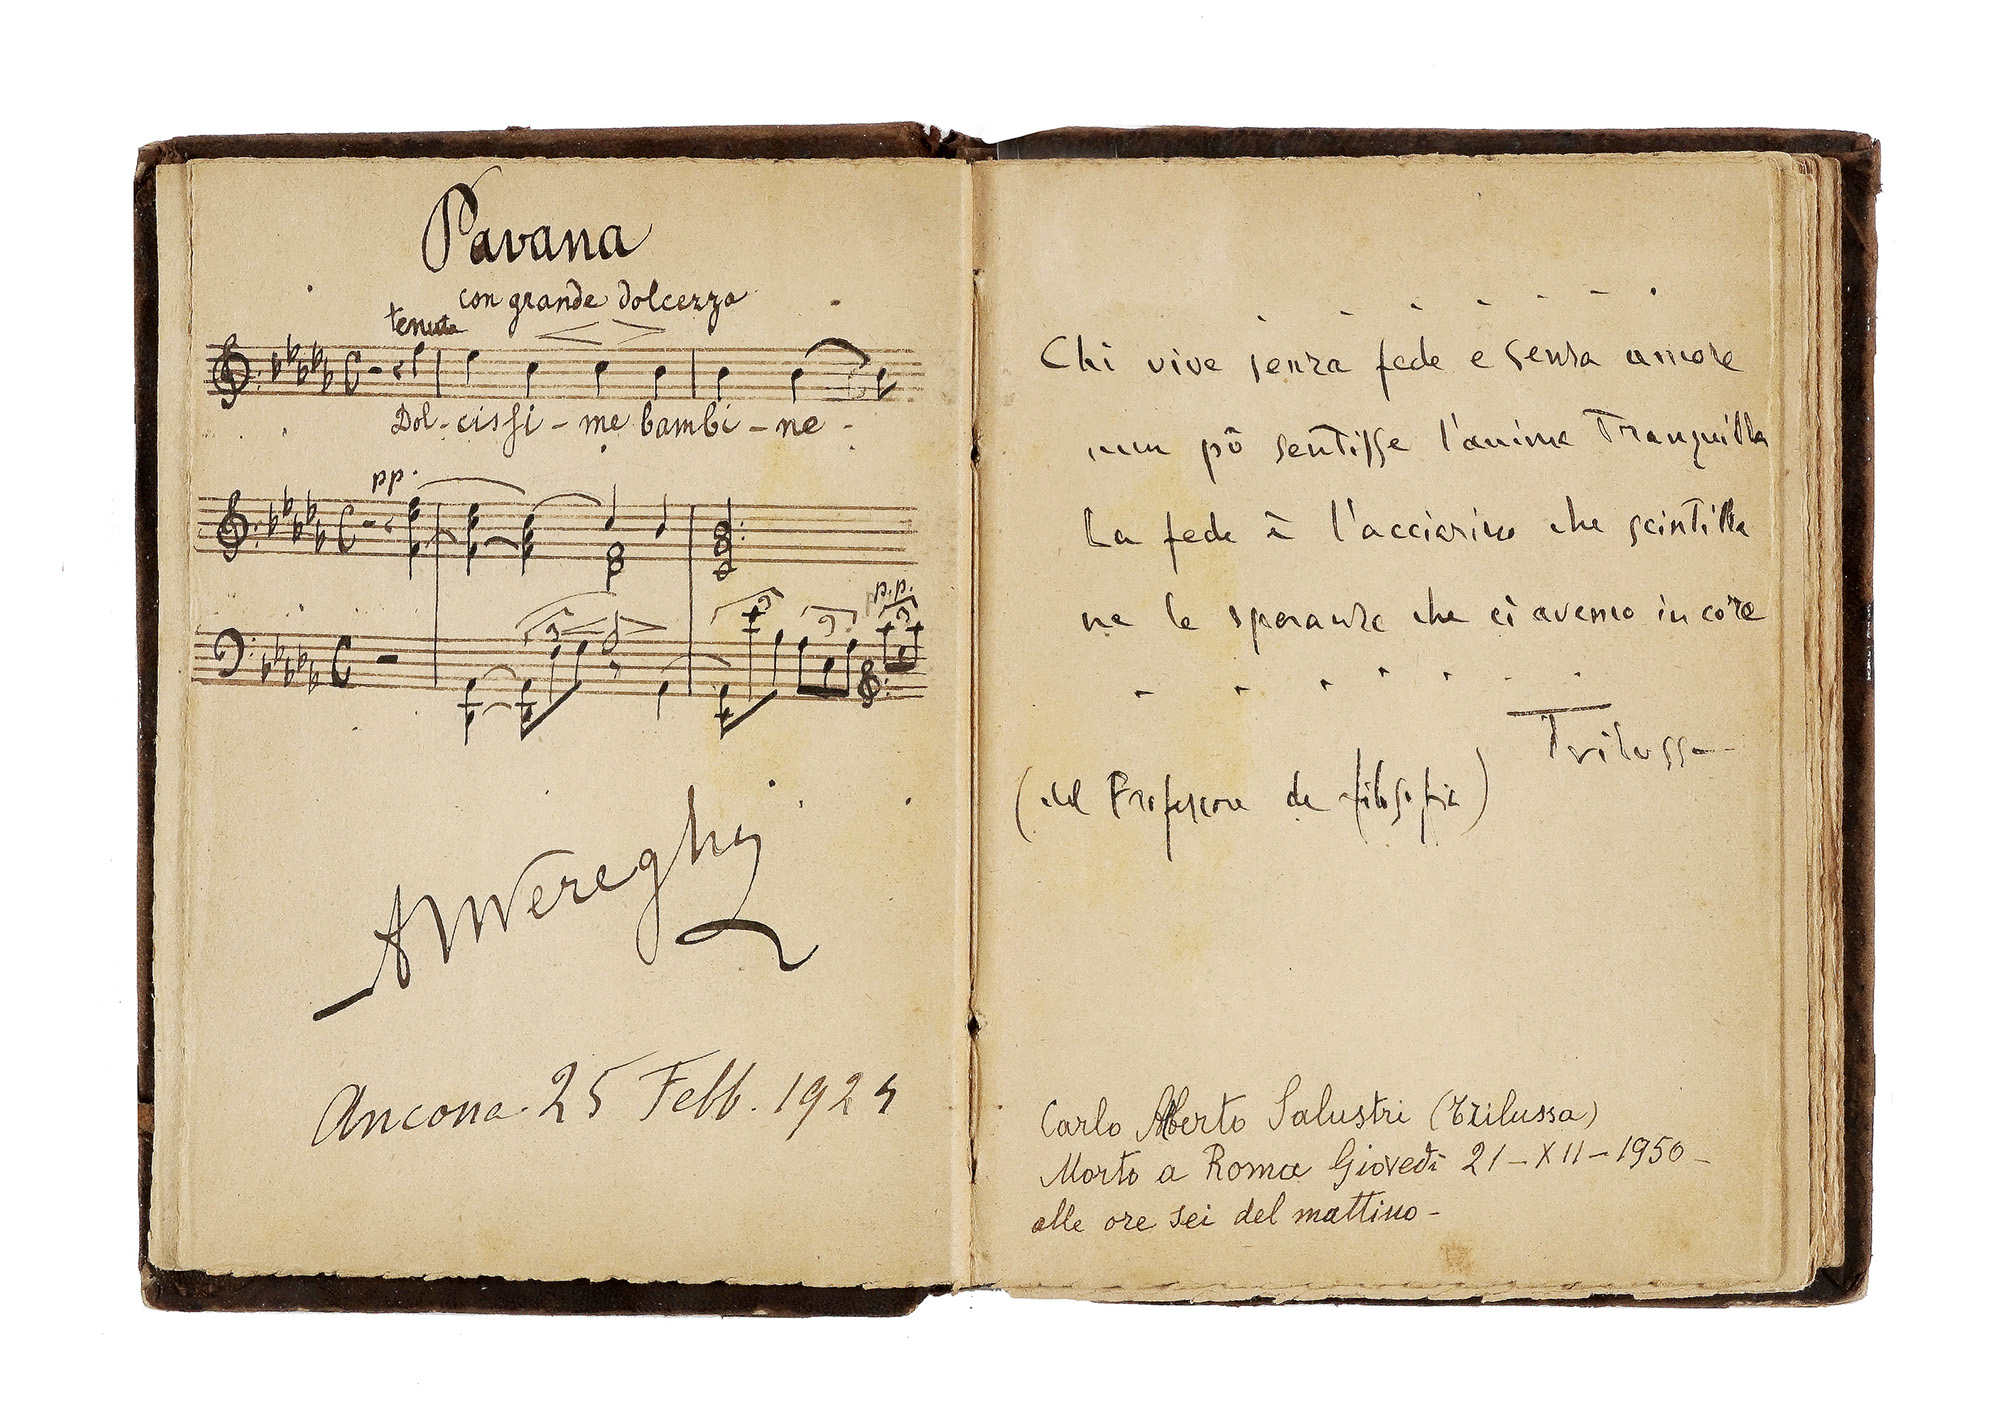 Pavana
con grande dolcezza
tenuta
Dol - cissi - me bambi - ne -
pp.
3
3
3
p.p.
3
Ancona 25 Febb. 1924
Chi vive senza fede e senza amore
nun pô sentisse l'anima Tranquilla
La fede è l'acciarino che scintilla
ne le speranze che ci avemo in core
Trilussa
(del Professore de filosofia)
Carlo Alberto Salustri (Trilussa)
Morto a Roma Giovedì 21-XII-1950-
alle ore sei del mattino-